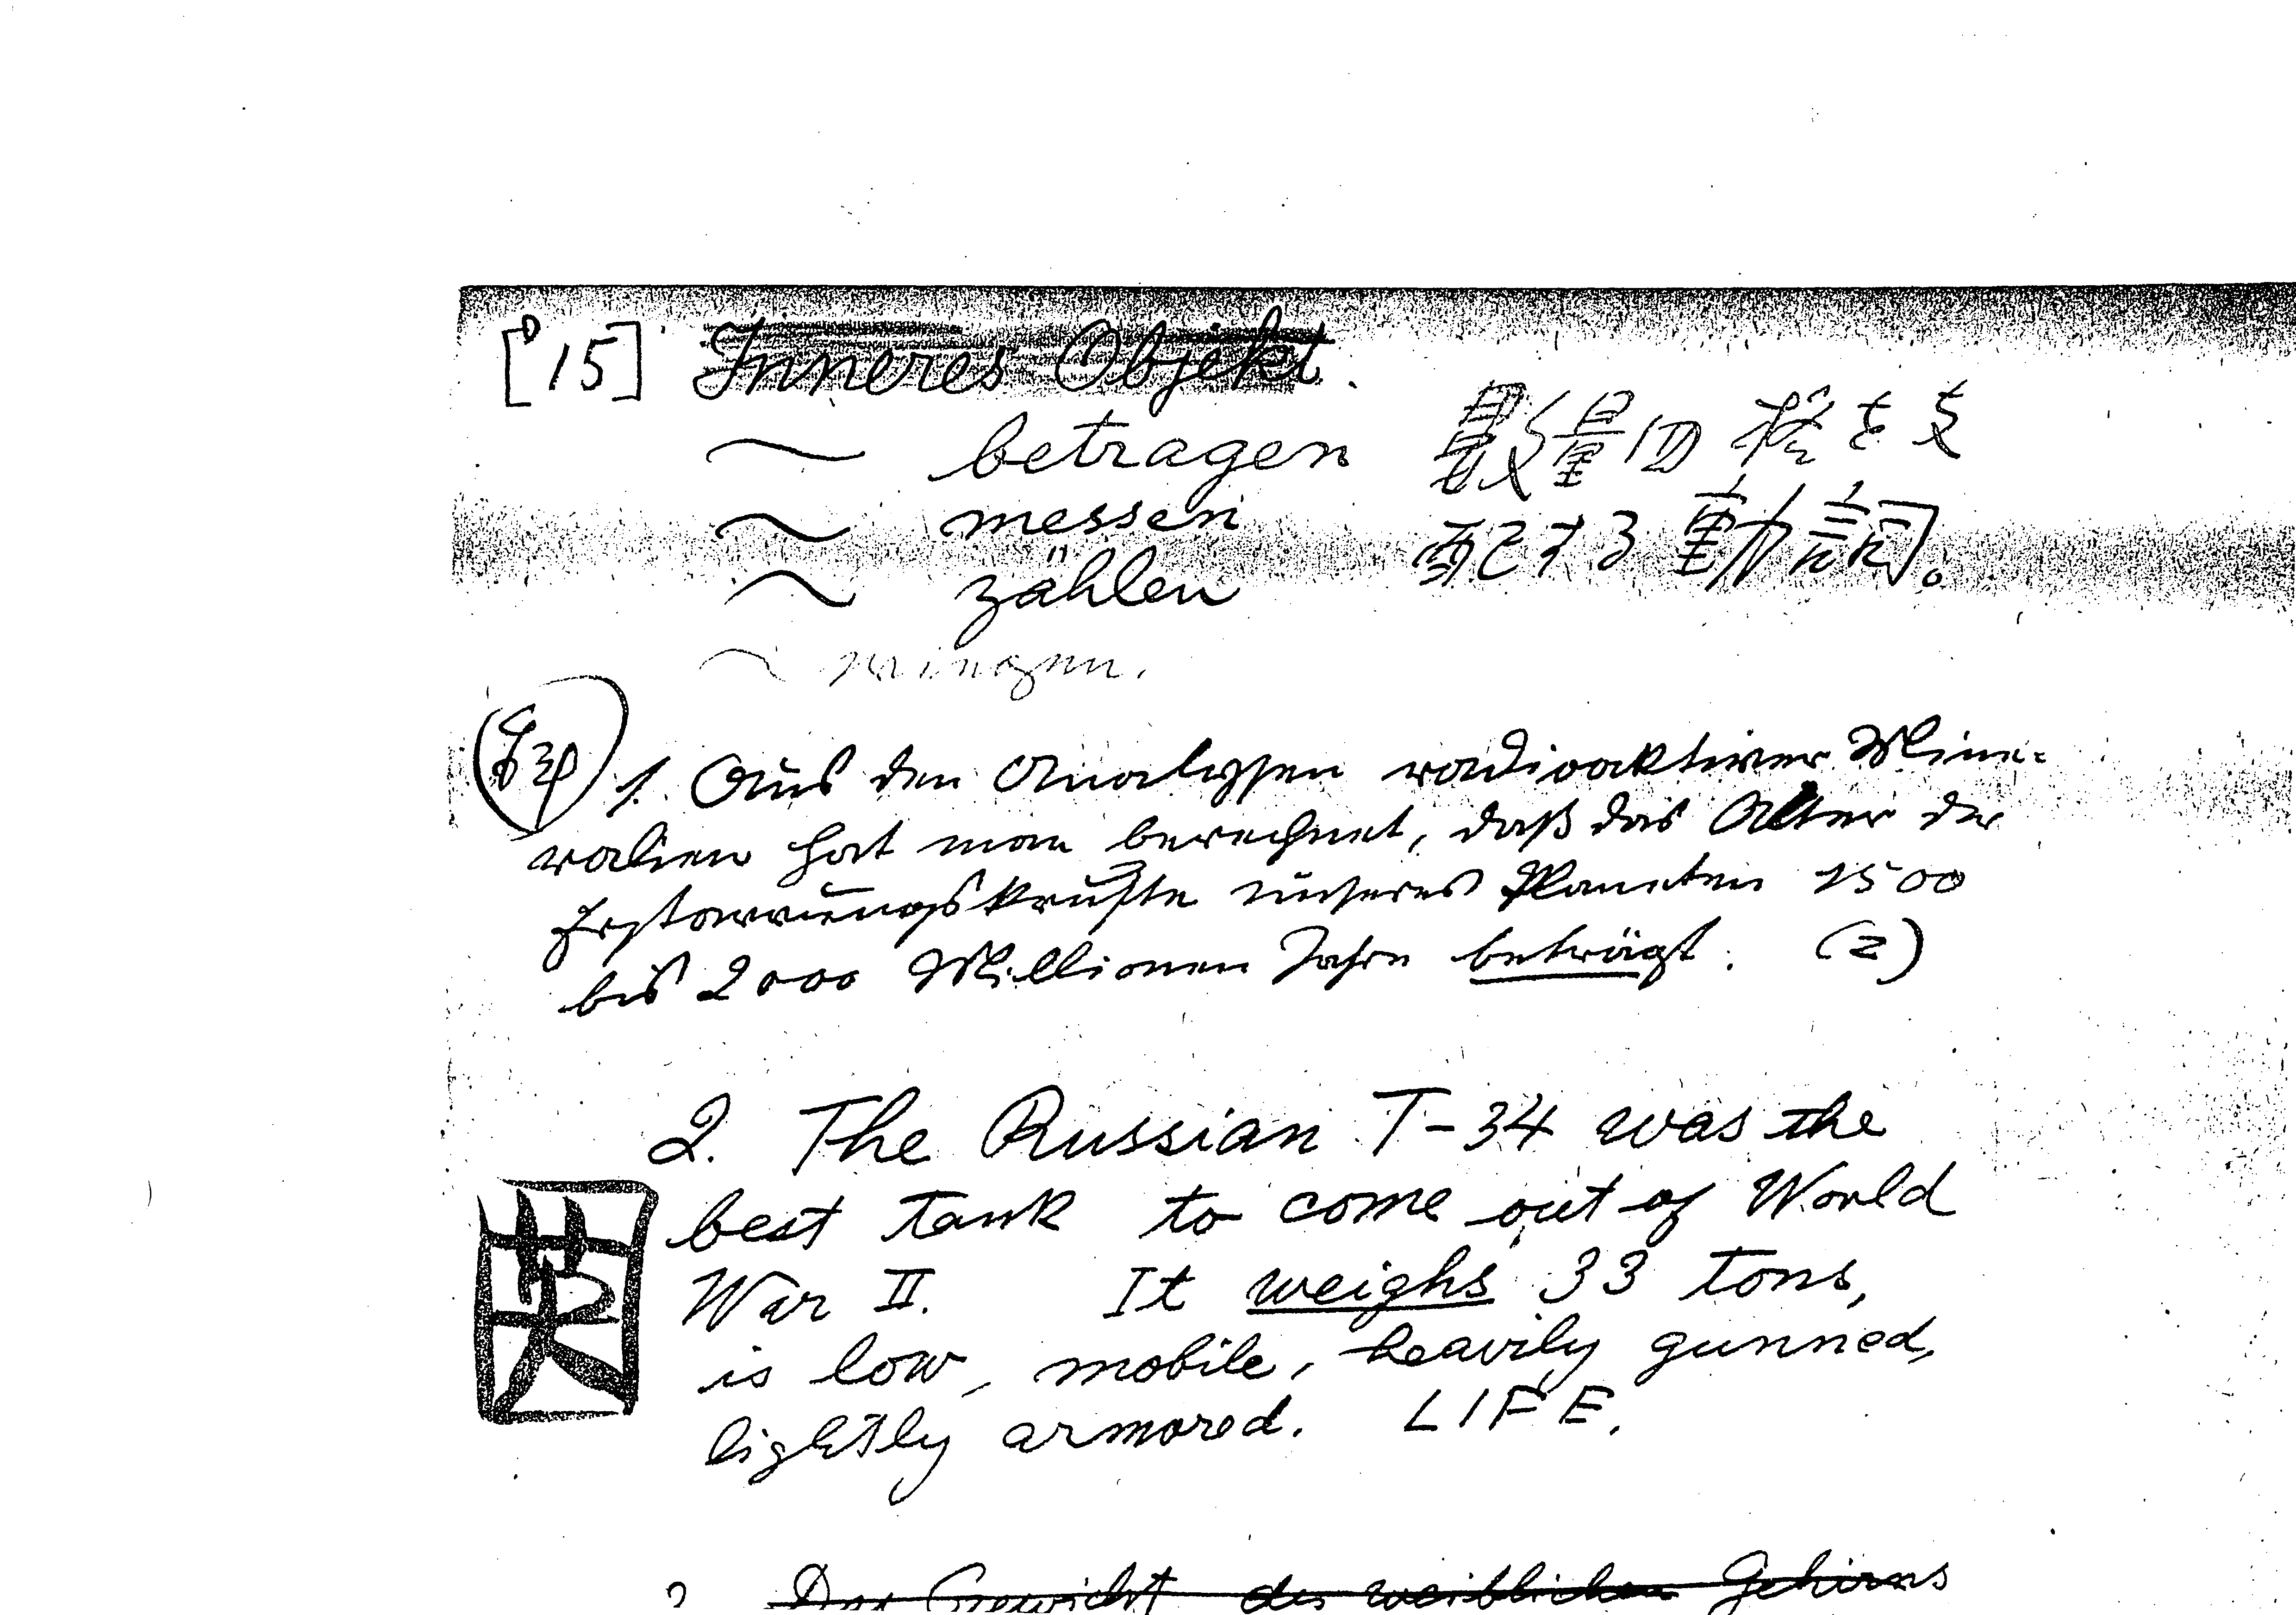 [°15] Inneres Objekt.
~ betragen 數量の格を支
~ messen 配する動詞。
~ zählen
1. Aus den Analysen radioaktiver Mine-
ralien hat man berechnet, daß das Alter der
Erstarrungskruste unseres Planeten 1500
bis 2000 Millionen Jahre beträgt. (Z)
2. The Russian T-34 was the
best tank to come out of World
War II. It weighs 33 tons,
is low, mobile, heavily gunned,
lightly armored. LIFE.
英
Das Gewicht des weiblichen Gehirns